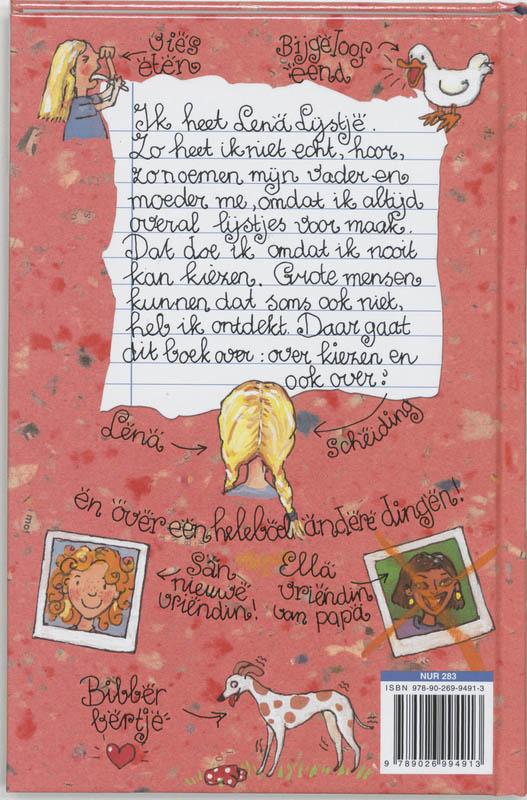 vies
eten
Bijgeloof
eend
Ik heet Lena Lijstje.
Zo heet ik niet echt, hoor,
zo noemen mijn vader en
moeder me, omdat ik altijd
overal lijstjes voor maak.
Dat doe ik omdat ik nooit
kan kiezen. Grote mensen
kunnen dat soms ook niet,
heb ik ontdekt. Daar gaat
dit boek over: over kiezen en
ook over:
Lena
scheiding
en over een heleboel andere dingen!
San
nieuwe
vriendin!
Ella
vriendin
van papa
Bibber
bertje
NUR 283
ISBN 978-90-269-9491-3
9 789026 994913